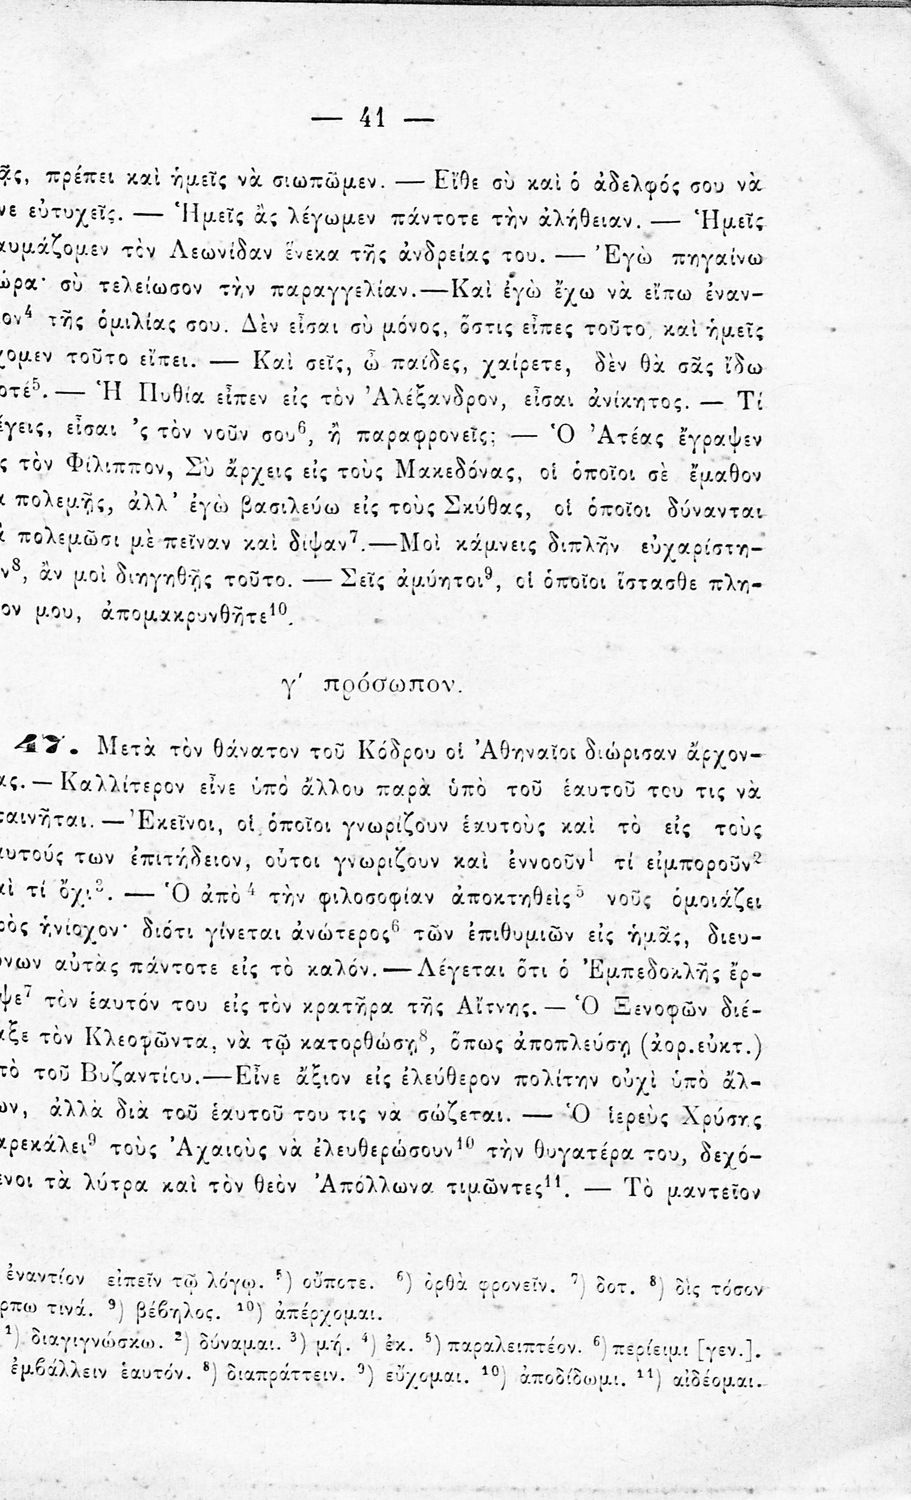 — 41 —
ᾶς, πρέπει καὶ ἡμεῖς νὰ σιωπῶμεν. — Εἴθε σὺ καὶ ὁ ἀδελφός σου νὰ
νε εὐτυχεῖς. — Ἡμεῖς ἂς λέγωμεν πάντοτε τὴν ἀλήθειαν. — Ἡμεῖς
αυμάζομεν τὸν Λεωνίδαν ἕνεκα τῆς ἀνδρείας του. — Ἐγὼ πηγαίνω
ώρα· σὺ τελείωσον τὴν παραγγελίαν. — Καὶ ἐγὼ ἔχω νὰ εἴπω ἐναν-
ον⁴ τῆς ὁμιλίας σου. Δὲν εἶσαι σὺ μόνος, ὅστις εἶπες τοῦτο, καὶ ἡμεῖς
χομεν τοῦτο εἴπει. — Καὶ σεῖς, ὦ παίδες, χαίρετε, δὲν θὰ σᾶς ἴδω
οτέ⁵. — Ἡ Πυθία εἶπεν εἰς τὸν Ἀλέξανδρον, εἶσαι ἀνίκητος. — Τί
έγεις, εἶσαι 'ς τὸν νοῦν σου⁶, ἢ παραφρονεῖς; — Ὁ Ἀτέας ἔγραψεν
ς τὸν Φίλιππον, Σὺ ἄρχεις εἰς τοὺς Μακεδόνας, οἱ ὁποῖοι σὲ ἔμαθον
ὰ πολεμῇς, ἀλλ' ἐγὼ βασιλεύω εἰς τοὺς Σκύθας, οἱ ὁποῖοι δύνανται
ὰ πολεμῶσι μὲ πεῖναν καὶ δίψαν⁷. — Μοὶ κάμνεις διπλῆν εὐχαρίστη-
ν⁸, ἂν μοὶ διηγηθῇς τοῦτο. — Σεῖς ἀμύητοι⁹, οἱ ὁποῖοι ἵστασθε πλη-
ον μου, ἀπομακρυνθῆτε¹⁰.
γ' πρόσωπον.
47. Μετὰ τὸν θάνατον τοῦ Κόδρου οἱ Ἀθηναῖοι διώρισαν ἄρχον-
ας. — Καλλίτερον εἶνε ὑπὸ ἄλλου παρὰ ὑπὸ τοῦ ἑαυτοῦ του τις νὰ
παινῆται. — Ἐκεῖνοι, οἱ ὁποῖοι γνωρίζουν ἑαυτοὺς καὶ τὸ εἰς τοὺς
αυτούς των ἐπιτήδειον, οὗτοι γνωριζουν καὶ ἐννοοῦν¹ τί εἰμποροῦν²
αὶ τί ὄχι³. — Ὁ ἀπὸ⁴ τὴν φιλοσοφίαν ἀποκτηθεὶς⁵ νοῦς ὁμοιάζει
ρὸς ἡνίοχον· διότι γίνεται ἀνώτερος⁶ τῶν ἐπιθυμιῶν εἰς ἡμᾶς, διευ-
ύνων αὐτὰς πάντοτε εἰς τὸ καλόν. — Λέγεται ὅτι ὁ Ἐμπεδοκλῆς ἔρ-
ψε⁷ τὸν ἑαυτόν του εἰς τὸν κρατῆρα τῆς Αἴτνης. — Ὁ Ξενοφῶν διέ-
αξε τὸν Κλεοφῶντα, νὰ τῷ κατορθώσῃ⁸, ὅπως ἀποπλεύσῃ (ἀορ.εὐκτ.)
πὸ τοῦ Βυζαντίου. — Εἶνε ἄξιον εἰς ἐλεύθερον πολίτην οὐχὶ ὑπὸ ἄλ-
ων, ἀλλὰ διὰ τοῦ ἑαυτοῦ του τις νὰ σώζεται. — Ὁ ἱερεὺς Χρύσης
αρεκάλει⁹ τοὺς Ἀχαιοὺς νὰ ἐλευθερώσουν¹⁰ τὴν θυγατέρα του, δεχό-
ενοι τὰ λύτρα καὶ τὸν θεὸν Ἀπόλλωνα τιμῶντες¹¹. — Τὸ μαντεῖον
ἐναντίον εἰπεῖν τῷ λόγῳ. ⁵) οὔποτε. ⁶) ὀρθὰ φρονεῖν. ⁷) δοτ. ⁸) δὶς τόσον
ρπω τινά. ⁹) βέβηλος. ¹⁰) ἀπέρχομαι.
¹) διαγιγνώσκω. ²) δύναμαι. ³) μή. ⁴) ἐκ. ⁵) παραλειπτέον. ⁶) περίειμι [γεν.].
ἐμβάλλειν ἑαυτόν. ⁸) διαπράττειν. ⁹) εὔχομαι. ¹⁰) ἀποδίδωμι. ¹¹) αἰδέομαι.